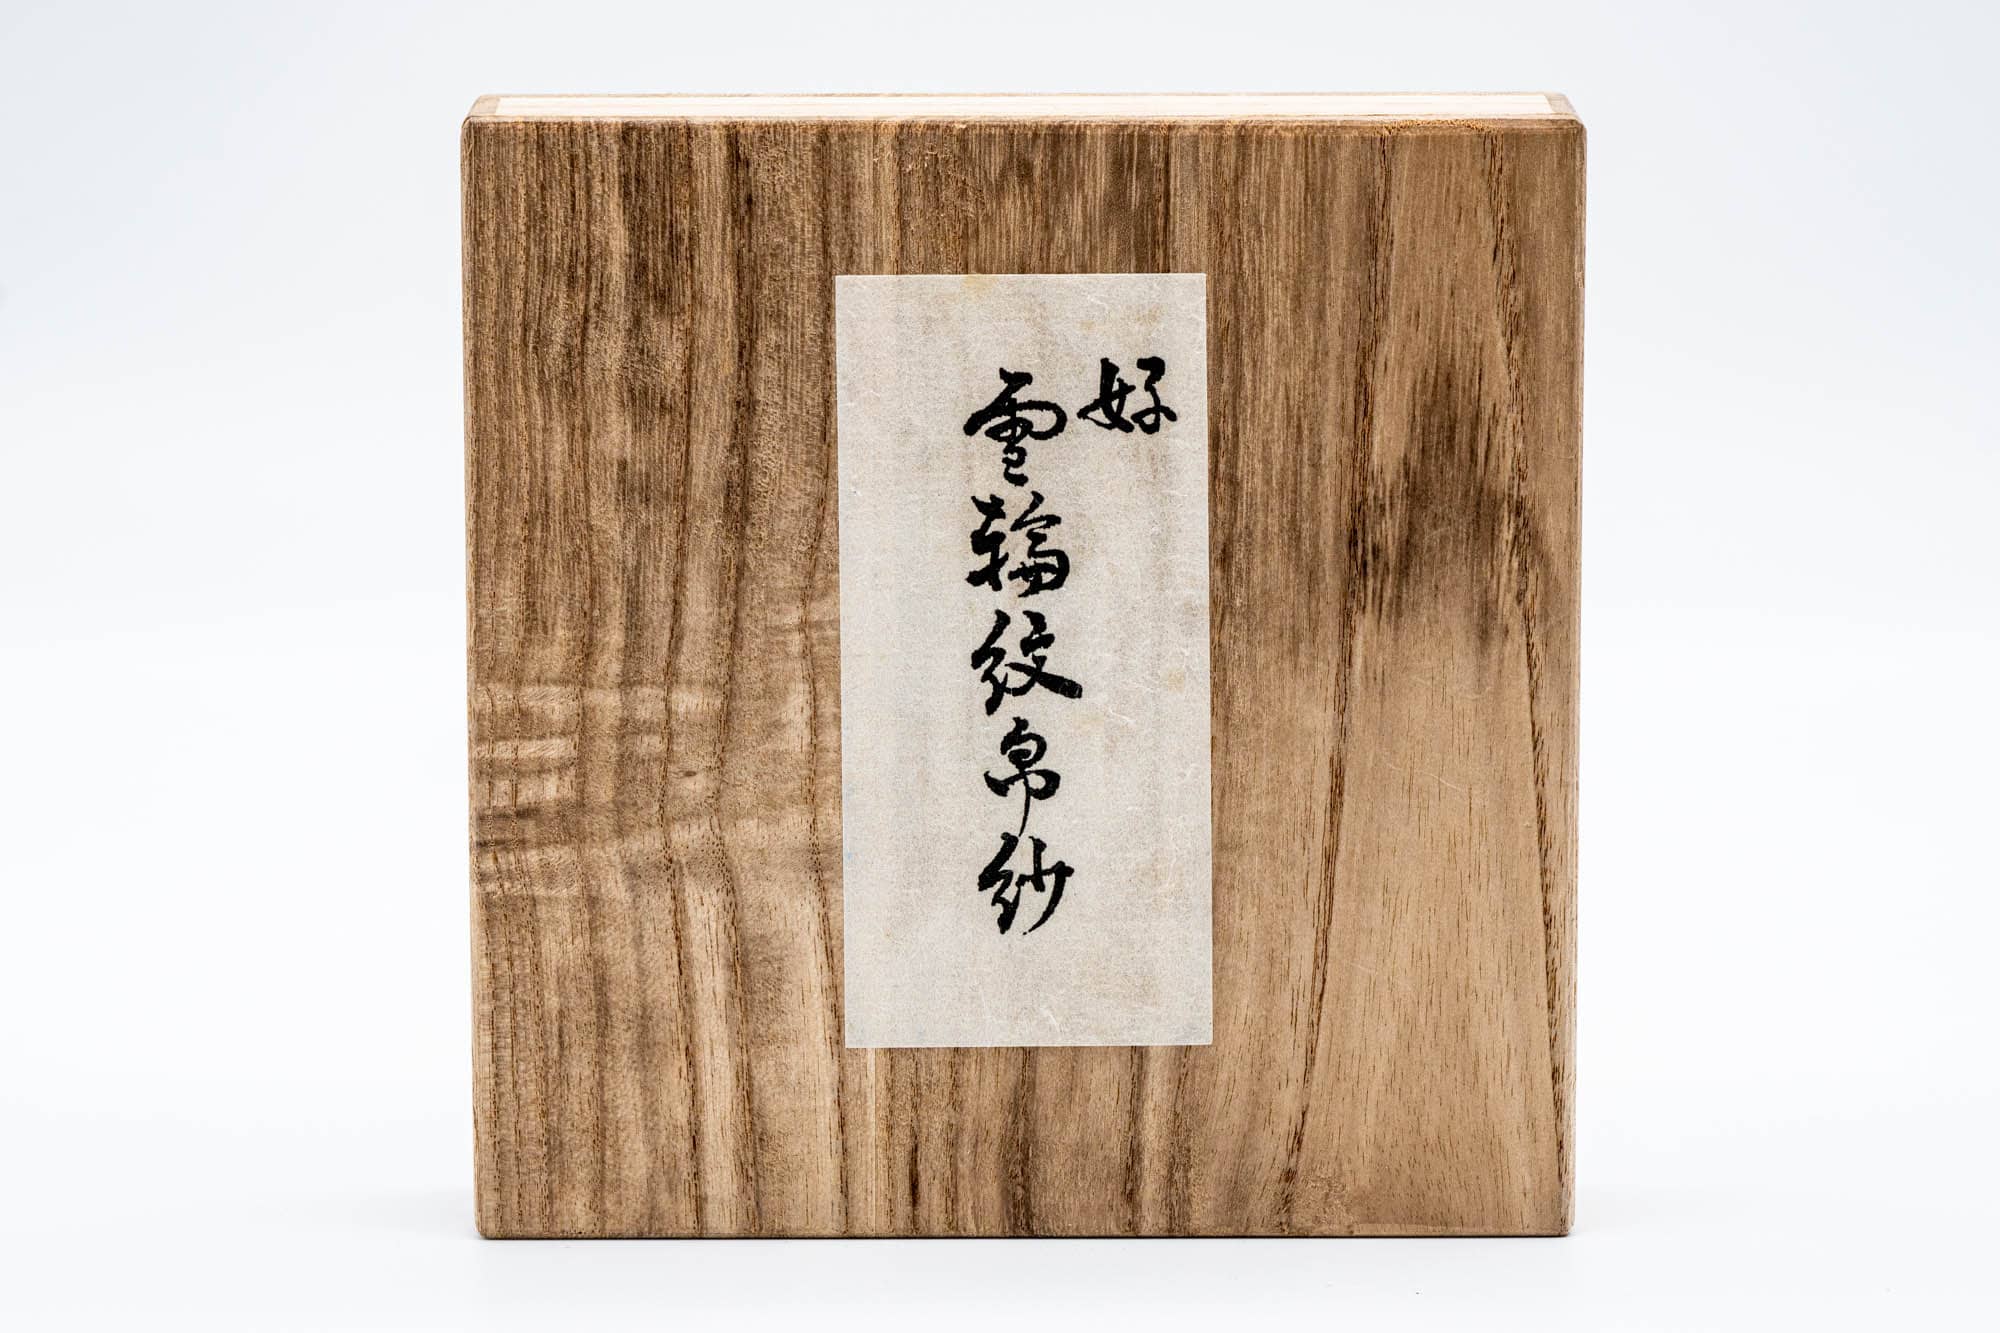 好
雪輪紋帛紗